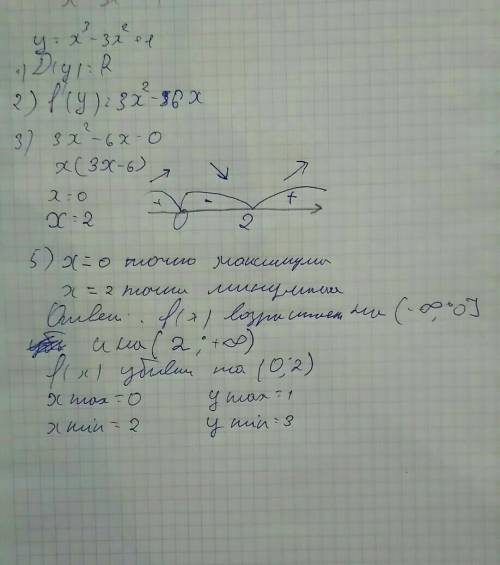 y = x³ - 3x² + 1
1) D(y) = R
2) f'(y) = 3x² - 6x
3) 3x² - 6x = 0
x(3x-6)
x = 0
x = 2
+ - +
0 2
5) x = 0 точка максимума
x = 2 точка минимума
Ответ: f(x) возрастает на (-∞; 0]
и на (2; +∞)
f(x) убывает на (0; 2)
x max = 0 y max = 1
x min = 2 y min = 3